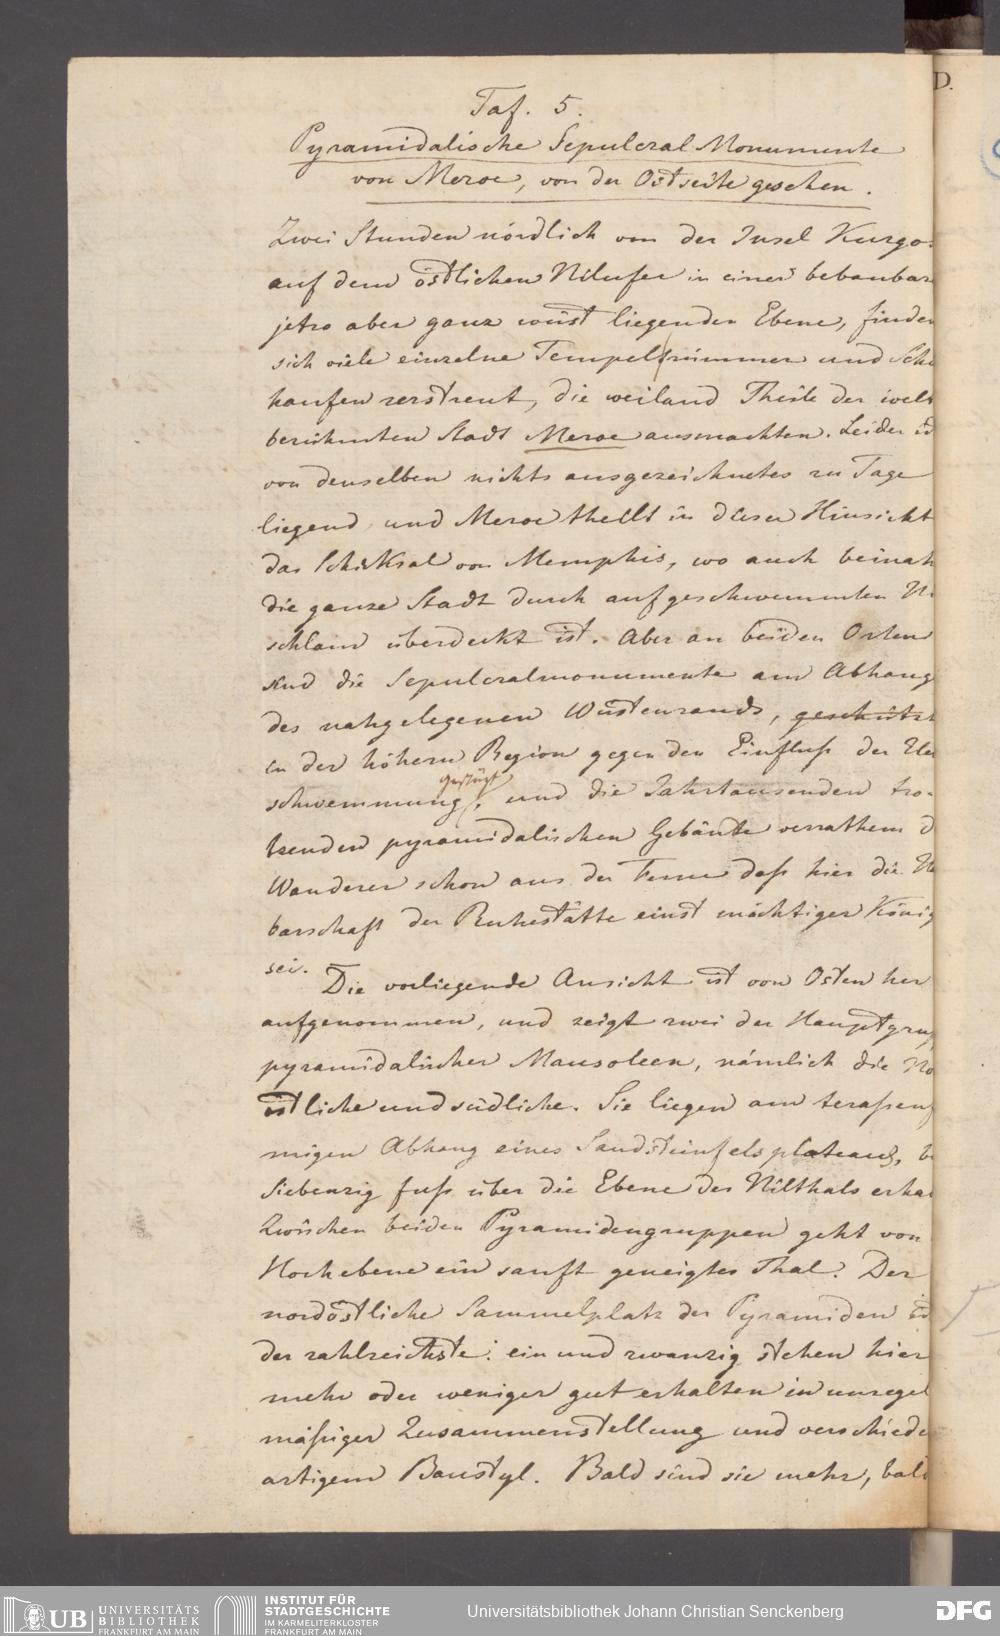 Taf. 5.
Pyramidalische Sepulcral Monumente
von Meroe, von der Ostseite gesehen.
Zwei Stunden nördlich von der Insel Kurgo
auf dem östlichen Nilufer in einer bebaubar
jetzo aber ganz wüst liegenden Ebene, finden
sich viele einzelne Tempeltrümmer und Schu
haufen zerstreut, die weiland Theile der welt
berühmten Stadt Meroe ausmachten. Leider ist
von denselben nichts ausgezeichnetes zu Tage
liegend, und Meroe theilt in dieser Hinsicht
das Schicksal von Memphis, wo auch beinah
die ganze Stadt durch aufgeschwemmten Ni
schlam überdeckt ist. Aber an beiden Orten
sind die Sepulcralmonumente am Abhang
des nahgelegenen Wüstenrands, geschützt
in der höhern Region gegen den Einfluß der Ue
geschüzt
schwemmung, und die Jahrtausenden tro-
tzenden pyramidalischen Gebäude verrathen d
Wanderer schon aus der Ferne daß hier die Na
barschaft der Ruhestätte einst mächtiger König
sei.
Die vorliegende Ansicht ist von Osten her
aufgenommen, und zeigt zwei der Hauptgrup
pyramidalischer Mausoleen, nämlich die No
östliche und südliche. Sie liegen am teraßenf
migen Abhang eines Sandsteinfelsplateaus, b
Siebenzig fuß über die Ebene des Nilthals erha
Zwischen beiden Pyramidengruppen geht von
Hochebene ein sanft geneigtes Thal. Der
nordöstliche Sammelplatz der Pyramiden ist
der zahlreichste: ein und zwanzig stehen hier
mehr oder weniger gut erhalten in unregel
mäßiger Zusammenstellung und verschieden
artigem Baustyl. Bald sind sie mehr, bald
D.
UB UNIVERSITÄTS
BIBLIOTHEK
FRANKFURT AM MAIN
INSTITUT FÜR
STADTGESCHICHTE
IM KARMELITERKLOSTER
FRANKFURT AM MAIN
Universitätsbibliothek Johann Christian Senckenberg
DFG